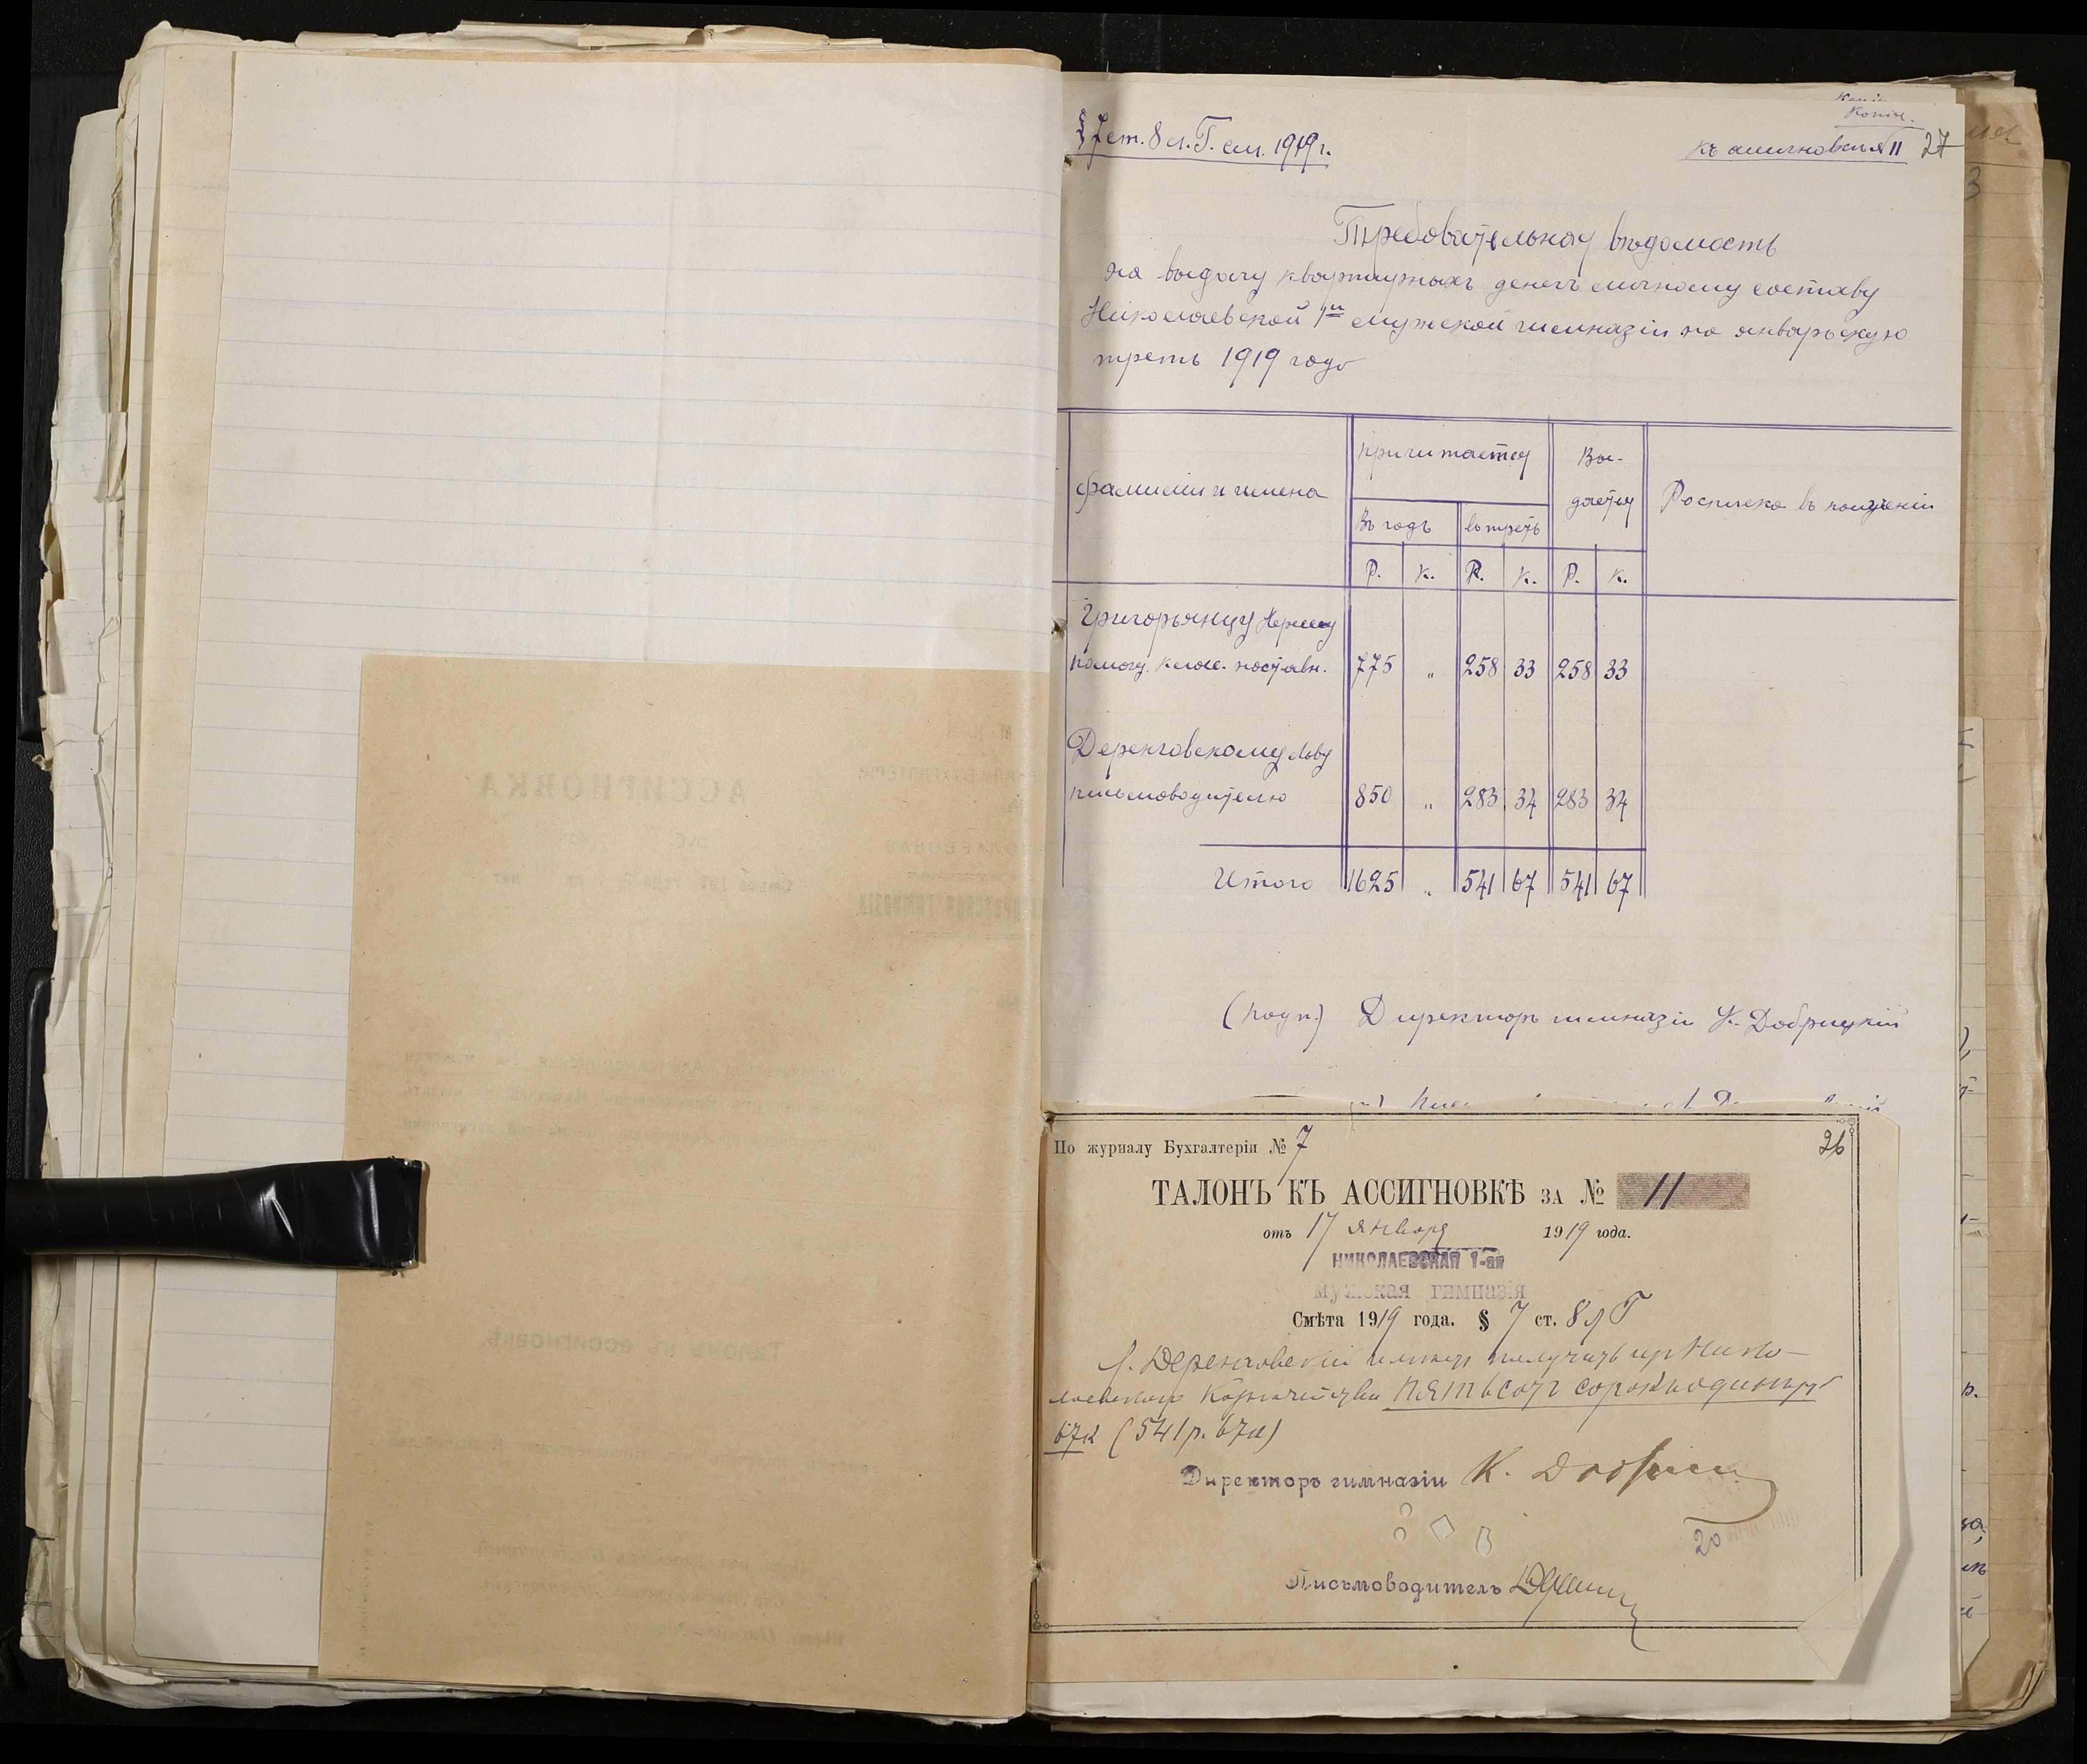 Копія.
§ 7 ст. 8 л. Г. см. 1919 г.
къ ассигновкѣ № 11
27
Требовательная вѣдомость
на выдачу квартирныхъ денегъ личному составу
Николаевской 1й мужской гимназіи за январьскую
треть 1919 года
Фамиліи и имена
Причитается
Вы-
дается
Росписка въ полученіи
Въ годъ
въ треть
Р. К. Р. К. Р. К.
Григорьянцу
помощ. класс. наставн. 775 „ 258 33 258 33
Деренговскому Льву
письмоводителю 850 „ 283 34 283 34
Итого 1625 „ 541 67 541 67
(подп.) Директоръ гимназіи К. Добрицкій
По журналу Бухгалтеріи № 7
26
ТАЛОНЪ КЪ АССИГНОВКѢ ЗА № 11
отъ 17 января 1919 года.
НИКОЛАЕВСКАЯ 1-ая
мужская гимназія
Смѣта 1919 года. § 7 ст. 8 л Г
Л. Деренговскій имѣетъ получить изъ Нико-
лаевскаго Казначейства пятьсотъ сорокъ одинъ руб
67 к (541 р. 67 к)
Директоръ гимназіи
20
Письмоводитель
АССИГНОВКА